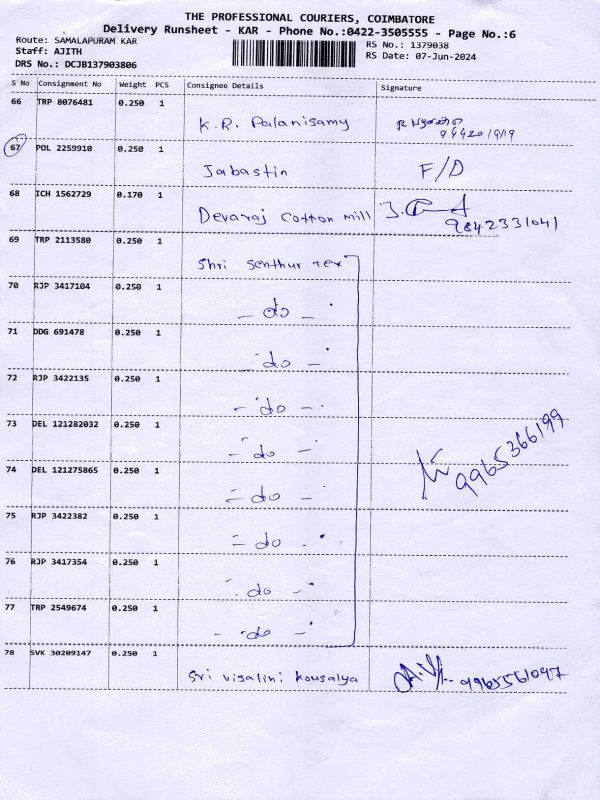 THE PROFESSIONAL COURIERS, COIMBATORE
Delivery Runsheet - KAR - Phone No.:0422-3505555 - Page No.:6
Route: SAMALAPURAM KAR
RS No.: 1379038
Staff: AJITH
RS Date: 07-Jun-2024
DRS No.: DCJB137903806
S No Consignment No Weight PCS Consignee Details Signature
66 TRP 8076481 0.250 1
K.R. Palanisamy
67 POL 2259910 0.250 1
Jabastin F/D
68 ICH 1562729 0.170 1
Devaraj Cotton Mill 9842331041
69 TRP 2113580 0.250 1
Shri Senthur Tex
70 RJP 3417104 0.250 1
- do -
71 DDG 691478 0.250 1
- do -
72 RJP 3422135 0.250 1
- do -
73 DEL 121282032 0.250 1
- do -
74 DEL 121275865 0.250 1
- do -
9965366199
75 RJP 3422382 0.250 1
- do -
76 RJP 3417354 0.250 1
- do -
77 TRP 2549674 0.250 1
- do -
78 SVK 30209147 0.250 1
Sri Visalini Kousalya 9965561047